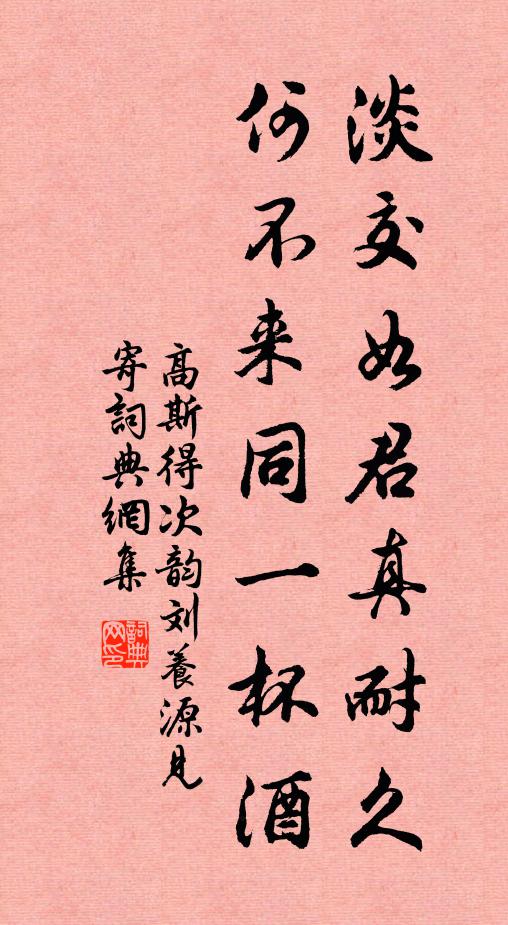 淡交如君真耐久
何不来同一杯酒
高斯得次韵刘養源見
寄詞典網集
詞典网印